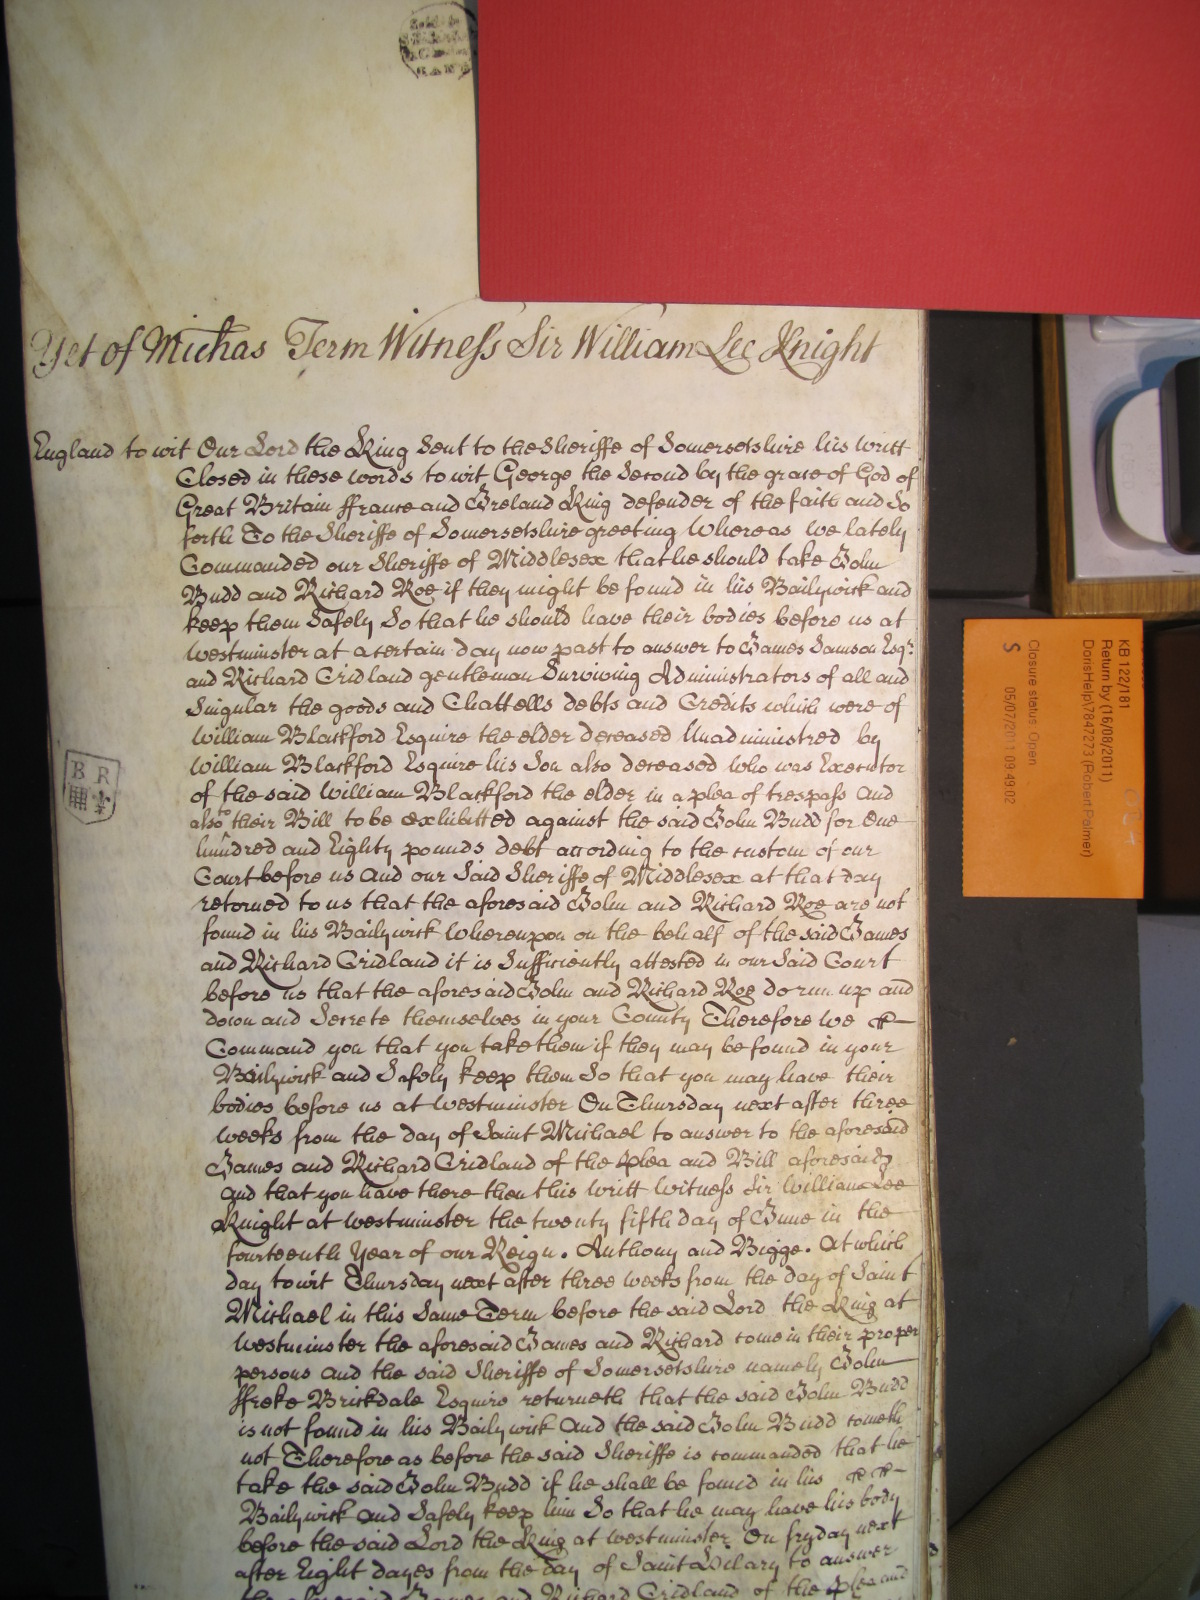 Yet of Michas Term Witness Sir William Lee Knight
England to wit Our Lord the King Sent to the Sheriffe of Somersetshire his writt
Closed in these words to wit George the Second by the grace of God of
Great Britain ffrance and Ireland King defender of the faith and So
forth To the Sheriffe of Somersetshire greeting Whereas we lately
Commanded our Sheriffe of Middlesex that he should take John
Budd and Richard Roe if they might be found in his Bailywick and
keep them Safely So that he should have their bodies before us at
Westminster at a certain day now past to answer to James Samson Esqr.
and Richard Cridland gentleman Surviving Administrators of all and
Singular the goods and Chattells debts and Credits which were of
William Blackford Esquire the elder deceased Unadministred by
William Blackford Esquire his Son also deceased who was Executor
of the said William Blackford the elder in a plea of trespass And
also to their Bill to be exhibitted against the said John Budd for One
hundred and Eighty pounds debt according to the custom of our
Court before us And our Said Sheriffe of Middlesex at that day
returned to us that the aforesaid John and Richard Roe are not
found in his Bailywick Whereupon on the behalf of the said James
and Richard Cridland it is Sufficiently attested in our Said Court
before us that the aforesaid John and Richard Roe do run up and
down and Secrete themselves in your County Therefore We
Command you that you take them if they may be found in your
Bailywick and Safely keep them So that you may have their
bodies before us at Westminster On Thursday next after three
weeks from the day of Saint Michael to answer to the aforesaid
James and Richard Cridland of the plea and Bill aforesaid
And that you have there then this Writt Witness Sir William Lee
Knight at Westminster the twenty fifth day of June in the
fourteenth Year of our Reign. Anthony and Bigge. At which
day to wit Thursday next after three weeks from the day of Saint
Michael in this Same Term before the said Lord the King at
Westminster the aforesaid James and Richard come in their proper
persons And the said Sheriffe of Somersetshire namely John
ffreke Brickdale Esquire returneth that the said John Budd
is not found in his Bailywick And the said John Budd cometh
not Therefore as before the said Sheriffe is commanded that he
take the said John Budd if he shall be found in his
Bailywick and Safely keep him So that he may have his body
before the said Lord the King at Westminster On fryday next
after Eight dayes from the day of Saint Hilary to answer
the aforesaid James and Richard Cridland of the plea and
B R
KB 122/181
Return by (16/08/2011)
DorisHelp\7847273 (Robert Palmer)
Closure status: Open
05/07/2011 09:49:02
S